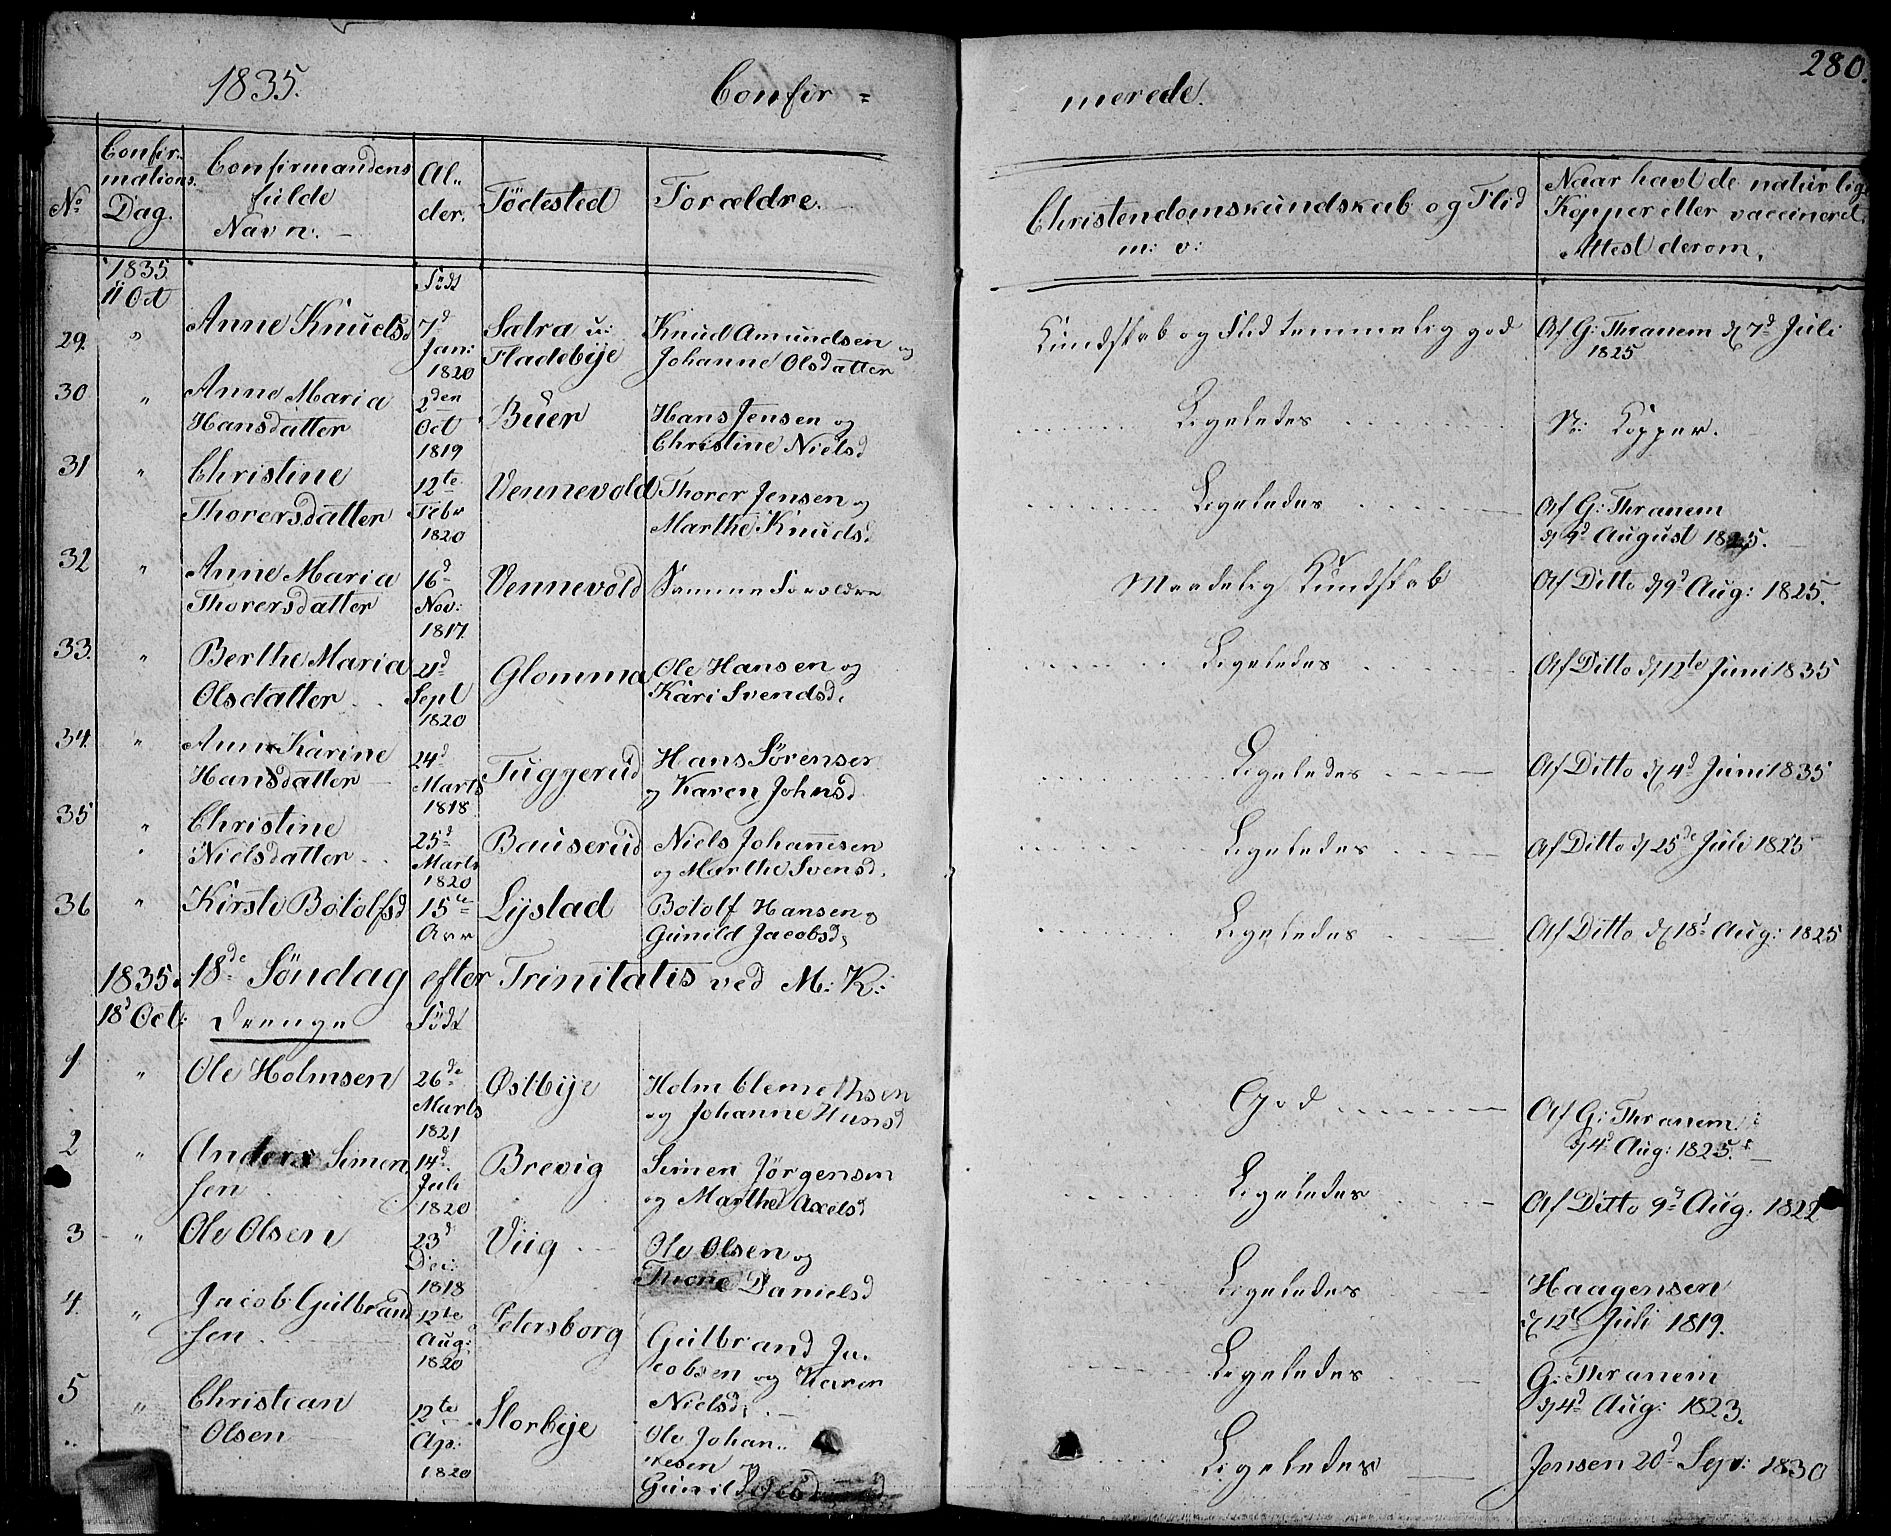 1835.
Confir=
merede.
280.
No
Confir:
mations.
Dag.
Confirmandens
fulde
Navn.
Al-
der.
Födested
Forældre.
Christendomskundskab og Flid
m: v:
Naar havt de naturlige
Kopper eller vaccineret.
Attest derom.
1835
11 Oct
Födt
29. " Anne Knudsd 7d Satra u: Knud Amundsen og Kundskab og Flid temmelig god Af G: Thranem d 7d Juli
Jan: Fladebye Johanne Olsdatter 1825
1820
30 " Anne Maria 2den Buer Hans Jensen og Ligeledes N: Kopper.
Hansdatter Oct Christine Nielsd
1819
31 " Christine 12te Vennevold Thorer Jensen og Ligeledes Af G: Thranem
Thorersdatter Febr Marthe Knudsd d 9d August 1825.
1820
32 " Anne Maria 16d Vennevold Samme Forældre Maadelig Kundskab Af Ditto d 9d Aug: 1825.
Thorersdatter Nov:
1817
33. " Berthe Maria 21d Glomma Ole Hansen og Ligeledes Af Ditto d 12te Juni 1835
Olsdatter Sept Kari Svendsd.
1820
34. " Anne Karine 24d Tuggerud Hans Sörensen Ligeledes Af Ditto d 4d Juni 1835
Hansdatter Marts og Karen Johnsd
1818.
35 " Christine 25d Bauserud Niels Johannesen Ligeledes Af Ditto d 25de Juli 1825
Nielsdatter Marts og Marthe Svensd.
1820
36 " Kirste Botolfsd 15te Lystad Botolf Hansen og Ligeledes Af Ditto d 18d Aug: 1825
Gunild Jacobsd,
1835. 18de Söndag efter Trinitatis ved M: K:
18d Oct: Drenge Födt
1 " Ole Holmsen 26de Østbye Holm Clemethsen God Af G: Thranem
Marts og Johanne Hansd d 4d Aug: 1825.
1821
2 " Anders Simen 14d Brevig Simen Jörgensen Ligeledes Af Ditto 9d Aug: 1822
sen Juli og Marthe Axelsd
1820
3 " Ole Olsen 23d Viig Ole Olsen og Ligeledes Haagensen
Dec: Thorie Danielsd d 12t Juli 1819.
1818
4. " Jacob Gulbrand 12te Petersborg Gulbrand Ja- Ligeledes G: Thranem
sen Aug: cobsen og Karen d 4d Aug: 1823.
1820 Nielsd,
5 " Christian 12te Storbye Ole Johan- Ligeledes Jensen 20d Sep: 1830
Olsen Ap: nesen og
1820 Gunild